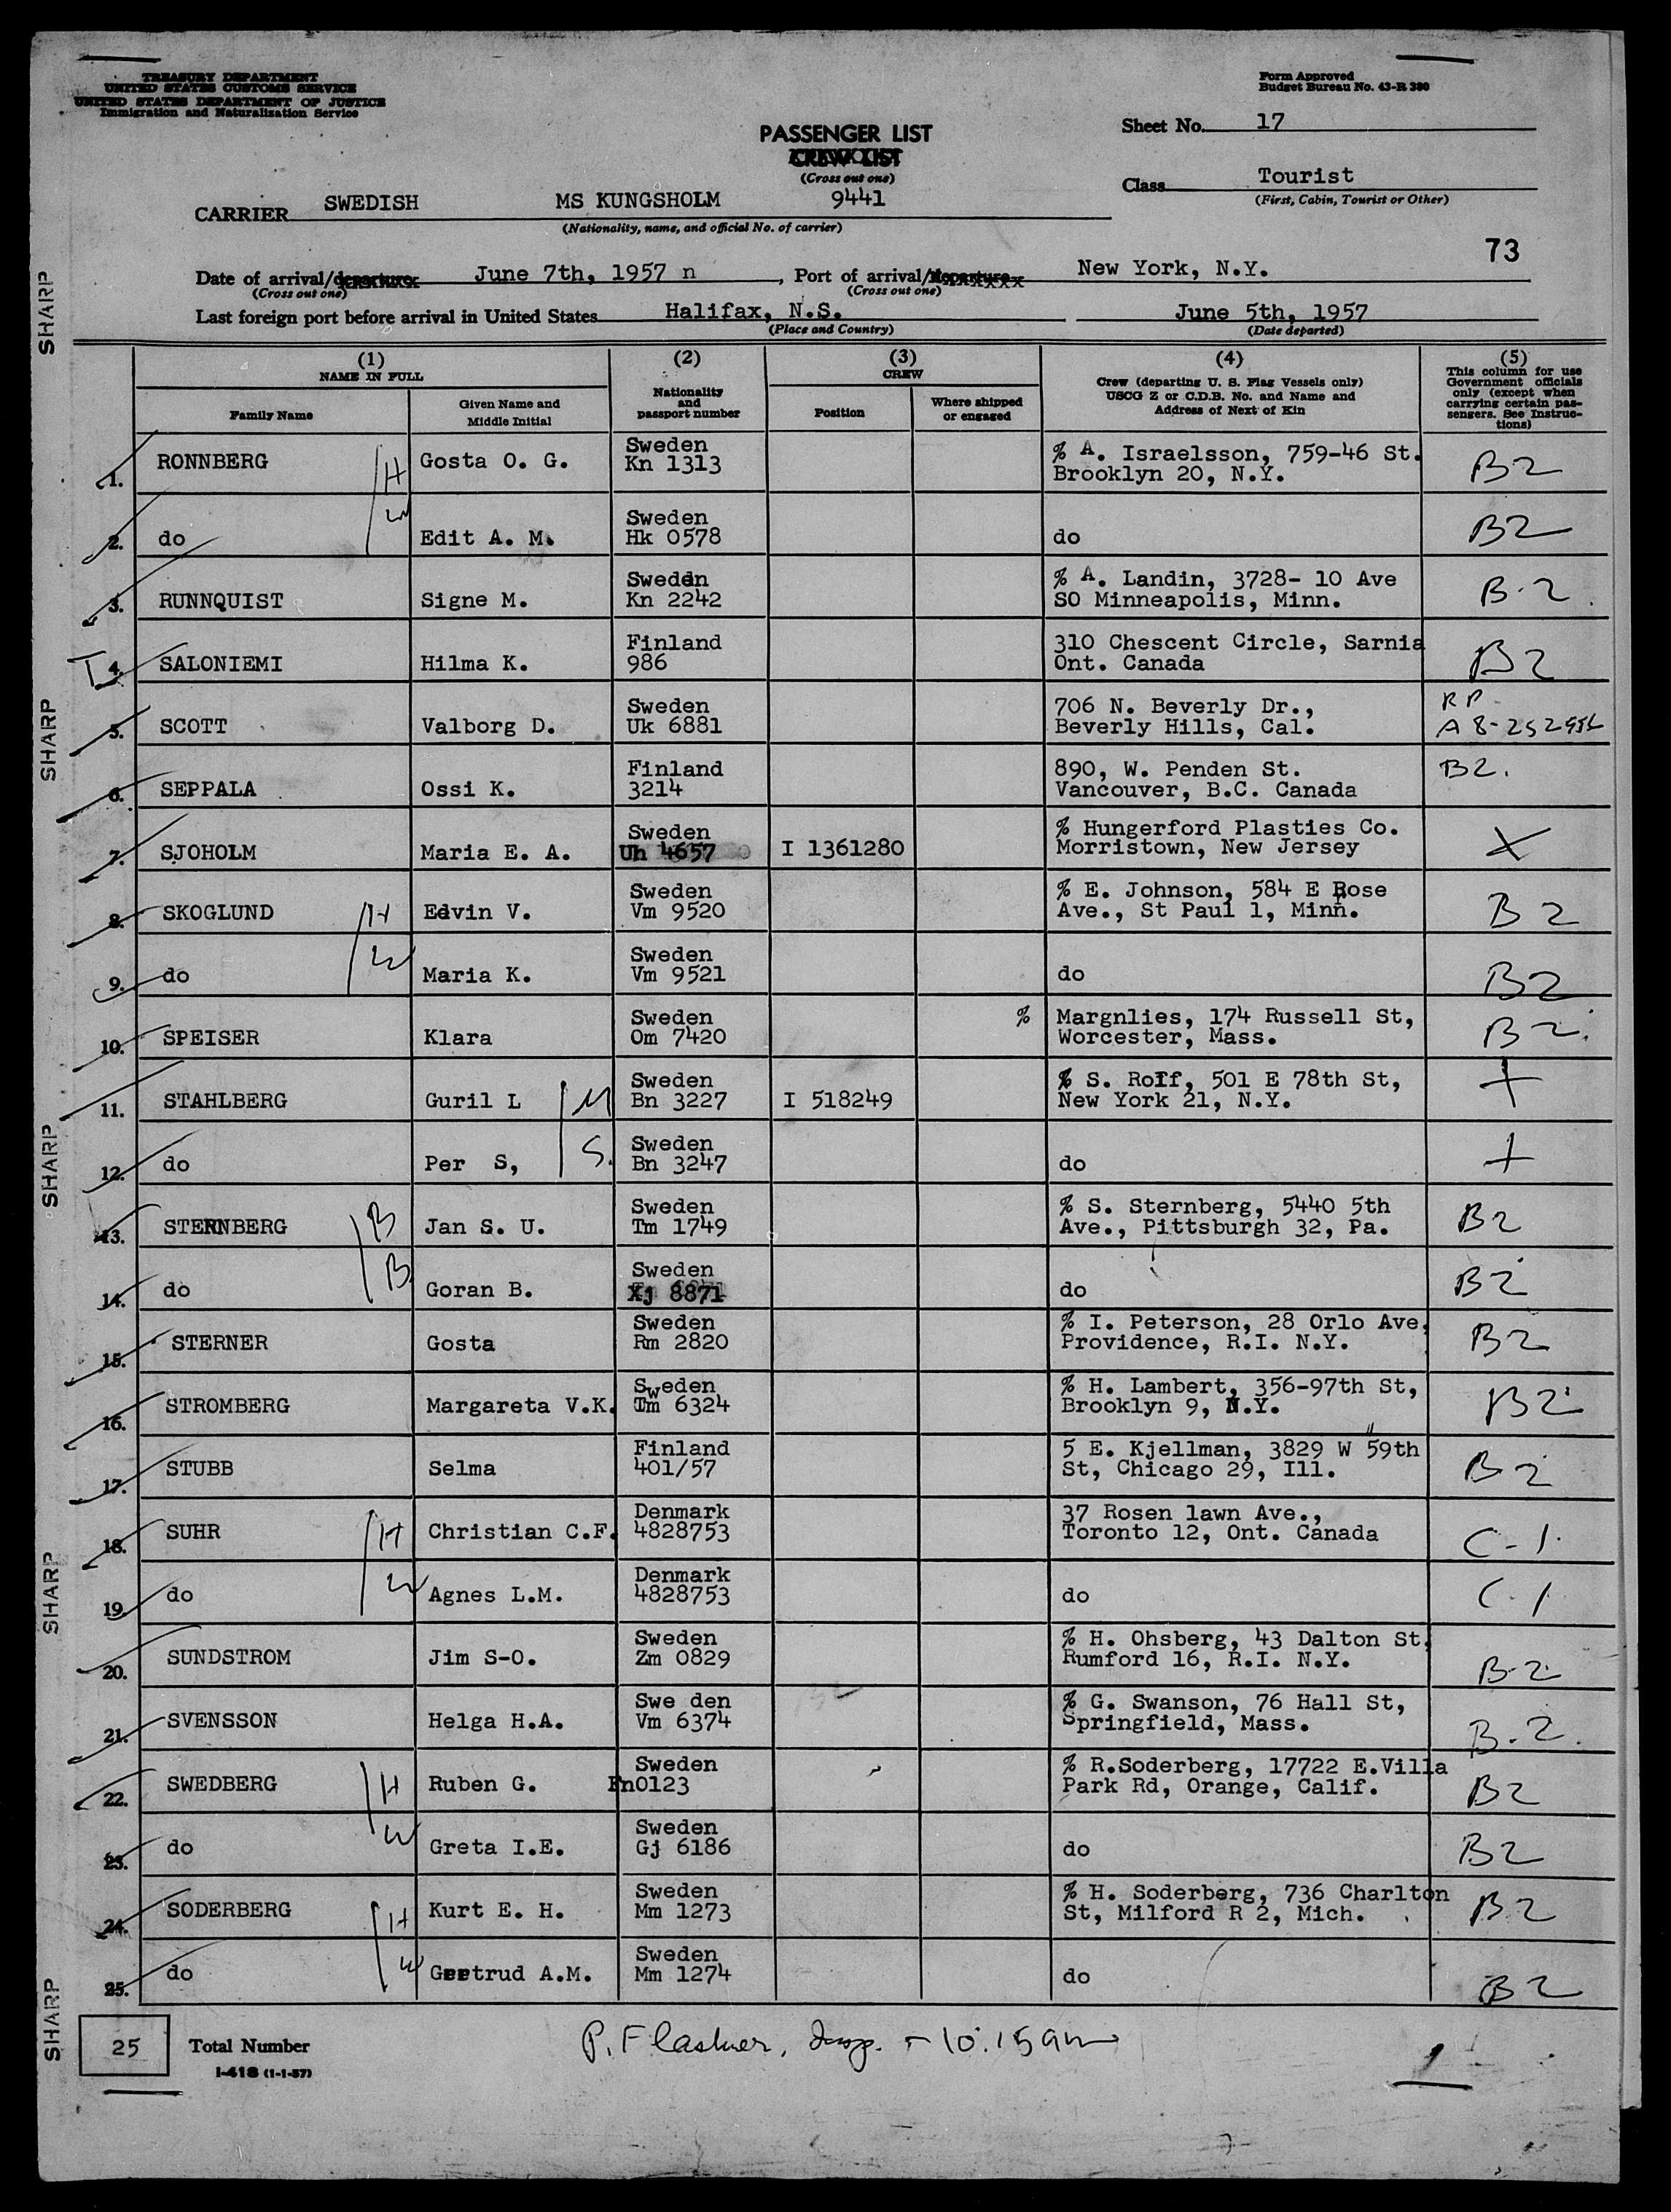 TREASURY DEPARTMENT
UNITED STATES CUSTOMS SERVICE
UNITED STATES DEPARTMENT OF JUSTICE
Immigration and Naturalization Service
Form Approved
Budget Bureau No. 43-R 380
PASSENGER LIST
CREW LIST
(Cross out one)
Sheet No. 17
Class Tourist
(First, Cabin, Tourist or Other)
CARRIER SWEDISH MS KUNGSHOLM 9441
(Nationality, name, and official No. of carrier)
73
Date of arrival/departure June 7th, 1957 n, Port of arrival/departure New York, N.Y.
(Cross out one) (Cross out one)
Last foreign port before arrival in United States Halifax, N.S. June 5th, 1957
(Place and Country) (Date departed)
(1) (2) (3) (4) (5)
NAME IN FULL
Family Name
Given Name and
Middle Initial
Nationality
and
passport number
CREW
Position
Where shipped
or engaged
Crew (departing U. S. Flag Vessels only)
USCG Z or C.D.B. No. and Name and
Address of Next of Kin
This column for use
Government officials
only (except when
carrying certain pas-
sengers. See Instruc-
tions)
1. RONNBERG H Gosta O. G. Sweden Kn 1313 % A. Israelsson, 759-46 St. Brooklyn 20, N.Y. B2
2. do W Edit A. M. Sweden Hk 0578 do B2
3. RUNNQUIST Signe M. Sweden Kn 2242 % A. Landin, 3728- 10 Ave SO Minneapolis, Minn. B-2
T 4. SALONIEMI Hilma K. Finland 986 310 Chescent Circle, Sarnia Ont. Canada B2
5. SCOTT Valborg D. Sweden Uk 6881 706 N. Beverly Dr., Beverly Hills, Cal. RP
6. SEPPALA Ossi K. Finland 3214 890, W. Penden St. Vancouver, B.C. Canada B2.
7. SJOHOLM Maria E. A. Sweden Uh 4657 I 1361280 % Hungerford Plasties Co. Morristown, New Jersey X
8. SKOGLUND H Edvin V. Sweden Vm 9520 % E. Johnson, 584 E Rose Ave., St Paul 1, Minn. B2
9. do W Maria K. Sweden Vm 9521 do B2
10. SPEISER Klara Sweden Om 7420 % Margnlies, 174 Russell St, Worcester, Mass. B2
11. STAHLBERG Guril L M Sweden Bn 3227 I 518249 % S. Rolf, 501 E 78th St, New York 21, N.Y. +
12. do Per S, S. Sweden Bn 3247 do +
13. STERNBERG B Jan S. U. Sweden Tm 1749 % S. Sternberg, 5440 5th Ave., Pittsburgh 32, Pa. B2
14. do B Goran B. Sweden Xj 8871 do B2
15. STERNER Gosta Sweden Rm 2820 % I. Peterson, 28 Orlo Ave, Providence, R.I. N.Y. B2
16. STROMBERG Margareta V.K. Sweden Tm 6324 % H. Lambert, 356-97th St, Brooklyn 9, N.Y. B2
17. STUBB Selma Finland 401/57 5 E. Kjellman, 3829 W 59th St, Chicago 29, Ill. B2
18. SUHR H Christian C.F. Denmark 4828753 37 Rosen lawn Ave., Toronto 12, Ont. Canada C-1
19. do W Agnes L.M. Denmark 4828753 do C-1
20. SUNDSTROM Jim S-O. Sweden Zm 0829 % H. Ohsberg, 43 Dalton St, Rumford 16, R.I. N.Y. B-2
21. SVENSSON Helga H.A. Swe den Vm 6374 % G. Swanson, 76 Hall St, Springfield, Mass. B-2.
22. SWEDBERG H Ruben G. Sweden Fn0123 % R.Soderberg, 17722 E.Villa Park Rd, Orange, Calif. B2
23. do W Greta I.E. Sweden Gj 6186 do B2
24. SODERBERG H Kurt E. H. Sweden Mm 1273 % H. Soderberg, 736 Charlton St, Milford R 2, Mich. B2
25. do W Gertrud A.M. Sweden Mm 1274 do B2
25 Total Number
I-418 (1-1-57)
P. Flashner, Insp. - 10:15 am
1
SHARP
SHARP
SHARP
SHARP
SHARP